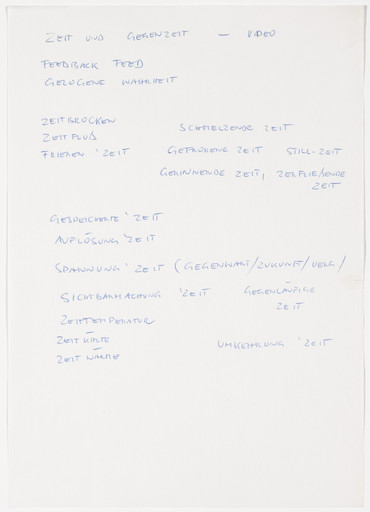 ZEIT UND GEGENZEIT — VIDEO
FEEDBACK FEED
GELOGENE WAHRHEIT
ZEITBROCKEN
SCHMELZENDE ZEIT
ZEITFLUß
FRIEREN 'ZEIT GEFRORENE ZEIT STILL-ZEIT
GERINNENDE ZEIT, ZERFLIEßENDE
ZEIT
GESPEICHERTE 'ZEIT
AUFLÖSUNG 'ZEIT
SPANNUNG 'ZEIT (GEGENWART/ZUKUNFT/VERG/
SICHTBARMACHUNG 'ZEIT GEGENLÄUFIGE
ZEIT
ZEITTEMPERATUR
ZEITKÄLTE
UMKEHRUNG 'ZEIT
ZEIT WÄRME